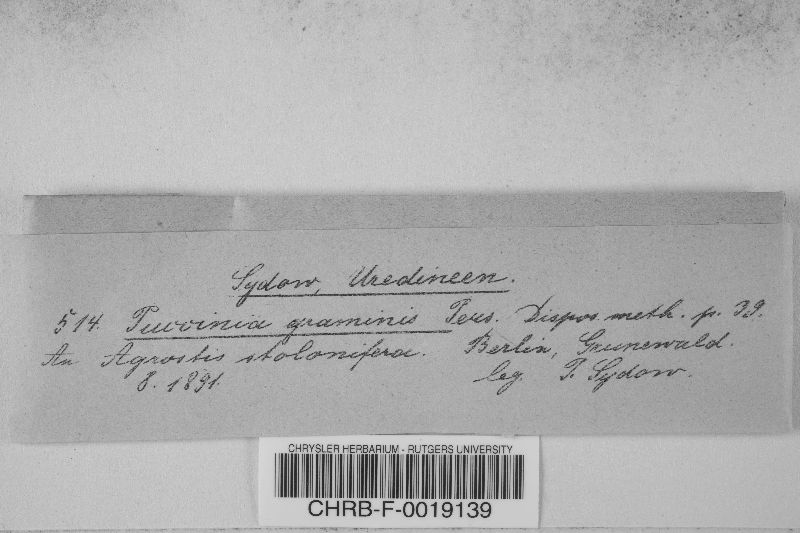 Sydow, Uredineen.
514. Puccinia graminis Pers. Dispos. meth. p. 39.
An Agrostis stolonifera. Berlin, Grunewald.
8. 1891. leg. P. Sydow.
CHRYSLER HERBARIUM - RUTGERS UNIVERSITY
CHRB-F-0019139